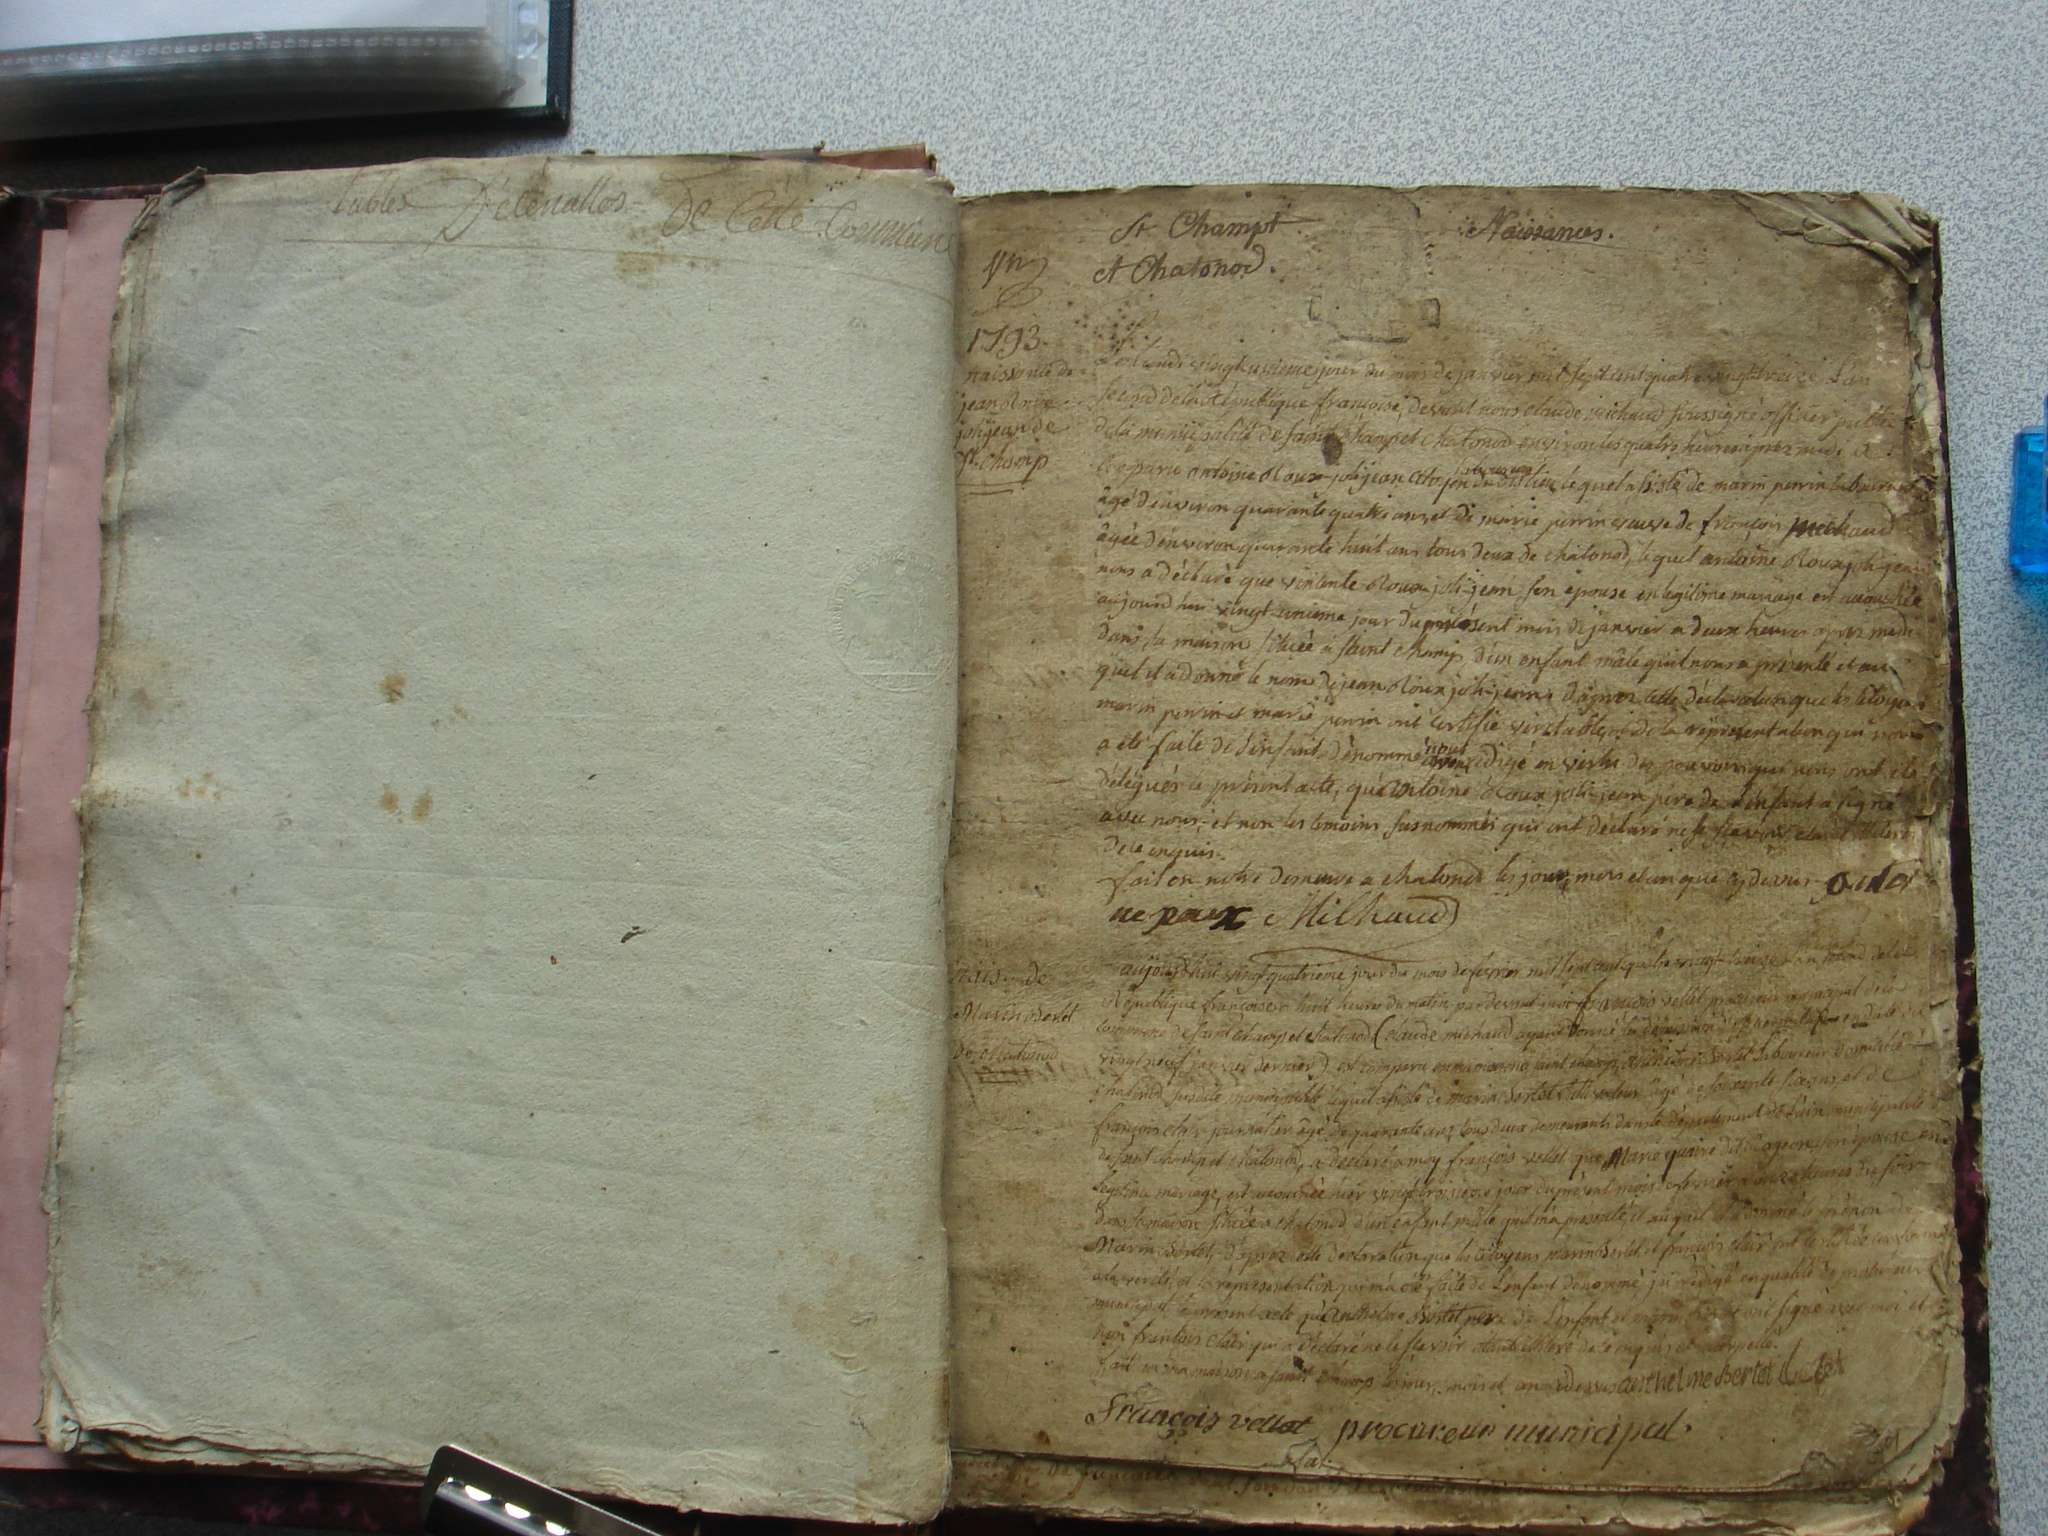 tables Décenalles De Cette Commune
St. Champt. Naissances.
et Chatonod.
1793.
naissance de
jean Roux
joli jean de
St. Champ
Le lundi vingt unieme jour du mois de janvier mil sept cent quatre vingt treize L'an
second de la République françoise, devant nous claude michaud soussigné officier public
de la municipalité de saint champ et chatonod environ les quatre heures aprez midi a
comparu antoine Roux joli jean citoyen laboureur du dit lieu lequel assisté de marin perrin laboureur
âgé d'environ quarante quatre ans, et de marie perrin veuve de françois michaud
âgée d'environ quarante huit ans tous deux de chatonod, lequel antoine Roux joli-jean
nous a déclaré que Roux joli-jean son epouse en legitime mariage est accouchée
aujourd'hui vingt unieme jour du présent mois de janvier a deux heures aprez midi
dans sa maison située a saint champ, d'un enfant mâle qu'il nous a présenté et au
quel il a donné le nom de jean Roux joli-jean, d'aprez cette déclaration que les citoyens
marin perrin et marie perrin ont certifié veritable, et de la représentation qui nous
a été faite de l'enfant dénommé nous avons rédigé en vertu des pouvoirs qui nous ont été
délégués le présent acte, que antoine Roux joli-jean pere de l'enfant a signé
avec nous, et non les temoins susnommés qui ont déclaré ne le sçavoir
de ce enquis.
fait en notre demeure a chatonod les jour, mois et an que cy dessus
ne roux Michaud
naiss. de
Marin Bertet
de chatonod
aujourd'hui vingt quatrieme jour du mois de fevrier mil sept cent quatre vingt treize l'an second de la
République françoise a huit heures du matin par devant moi françois vellet procureur municipal de la
commune de saint champ et chatonod (claude michaud ayant donné sa démission en date du
vingt neuf janvier dernier) est comparu en ma maison a saint champ, Bertet laboureur domicilié
chatonod lequel assisté de marin Bertet âgé de soixante et de
françois clair journalier âgé de quarante ans tous deux demeurants dans le département de l'ain municipalité
de saint champ et chatonod, a déclaré a moy françois vellet que Marie son épouse en
legitime mariage, est accouchée hier vingt troisieme jour du présent mois de fevrier a onze heures du soir
dans sa maison située a chatonod d'un enfant mâle qu'il m'a presenté et auquel il a donné le prénom de
Marin Bertet, d'aprez cette declaration que les citoyens marin Bertet et françois clair ont certifié conforme
a la verité, et la représentation qui m'a été faite de l'enfant denommé j'ai rédigé en qualité de procureur
municipal le present acte que anthelme Bertet pere de l'enfant et marin Bertet ont signé avec moi et
non françois clair qui a déclaré ne le sçavoir de ce enquis et interpellé.
fait en ma maison a saint champ les jour, mois et an cy dessus anthelme Bertet
François vellet procureur municipal.